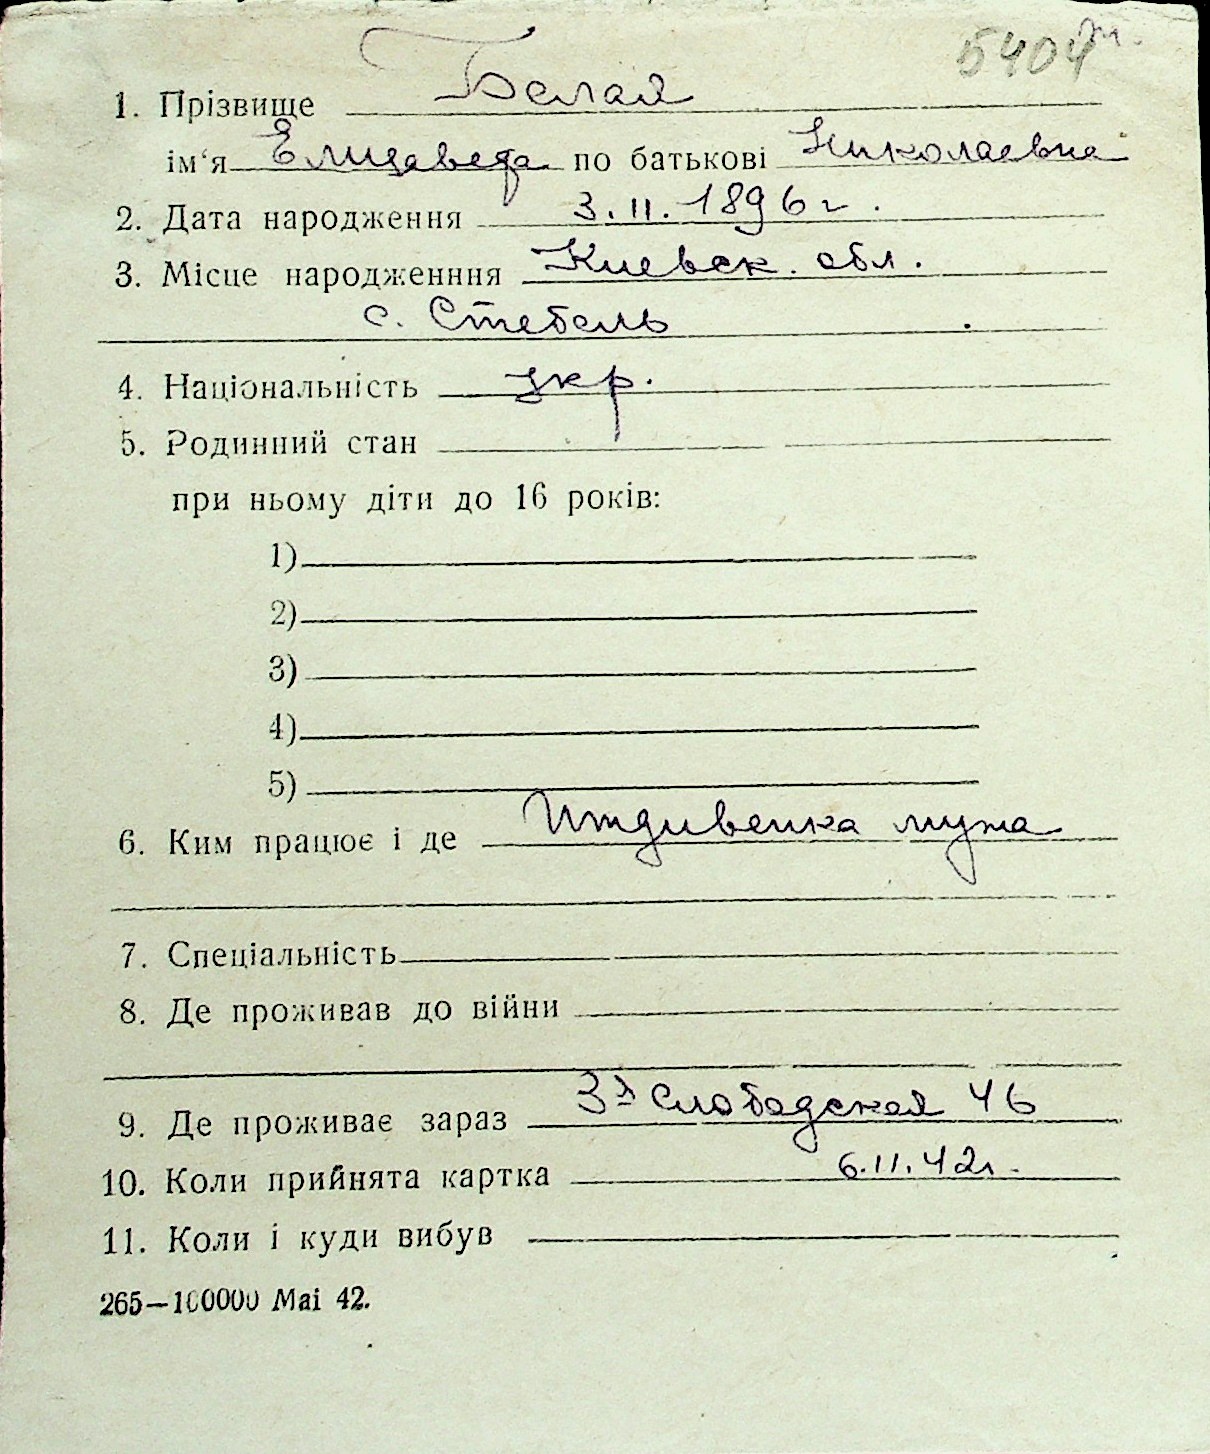 5404
1. Прізвище Белая
ім‘я Елизавета по батькові Николаевна
2. Дата народження 3.II.1896 г.
3. Місце народженння Киевск. обл.
с. Стебель
4. Національність укр.
5. Родинний стан
при ньому діти до 16 років:
1)
2)
3)
4)
5)
6. Ким працює і де Иждивенка мужа
7. Спеціальність
8. Де проживав до війни
9. Де проживає зараз 3я Слободская 46
10. Коли прийнята картка 6.11.42г.
11. Коли і куди вибув
265—100000 Mai 42.